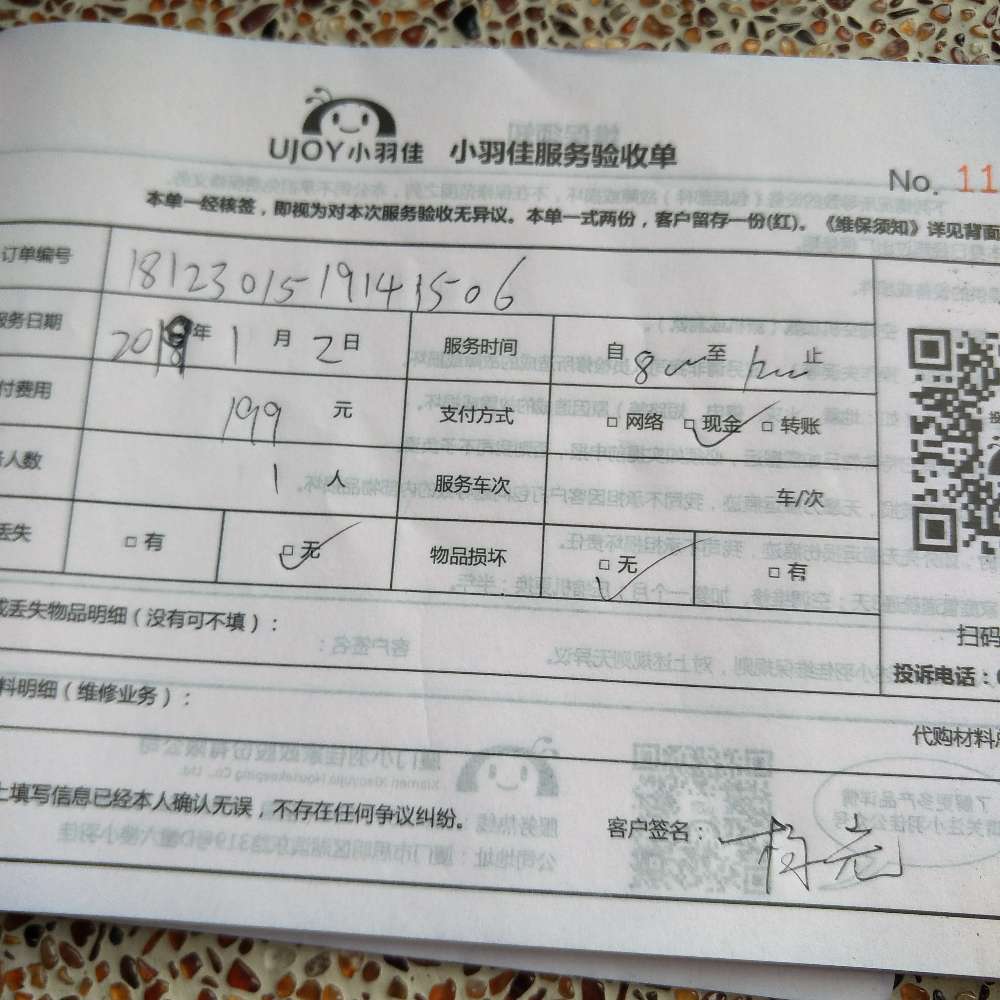 UJOY小羽佳 小羽佳服务验收单
No. 11
本单一经核签，即视为对本次服务验收无异议。本单一式两份，客户留存一份(红)。《维保须知》详见背面
订单编号 1812301519141506
服务日期 2019年1月2日 服务时间 自8 至12 止
付费用 199 元 支付方式 □网络 □现金 □转账
人数 1 人 服务车次 车/次
丢失 □有 □无 物品损坏 □无 □有
扫码
或丢失物品明细（没有可不填）：
投诉电话：
料明细（维修业务）：
代购材料
上填写信息已经本人确认无误，不存在任何争议纠纷。
客户签名：